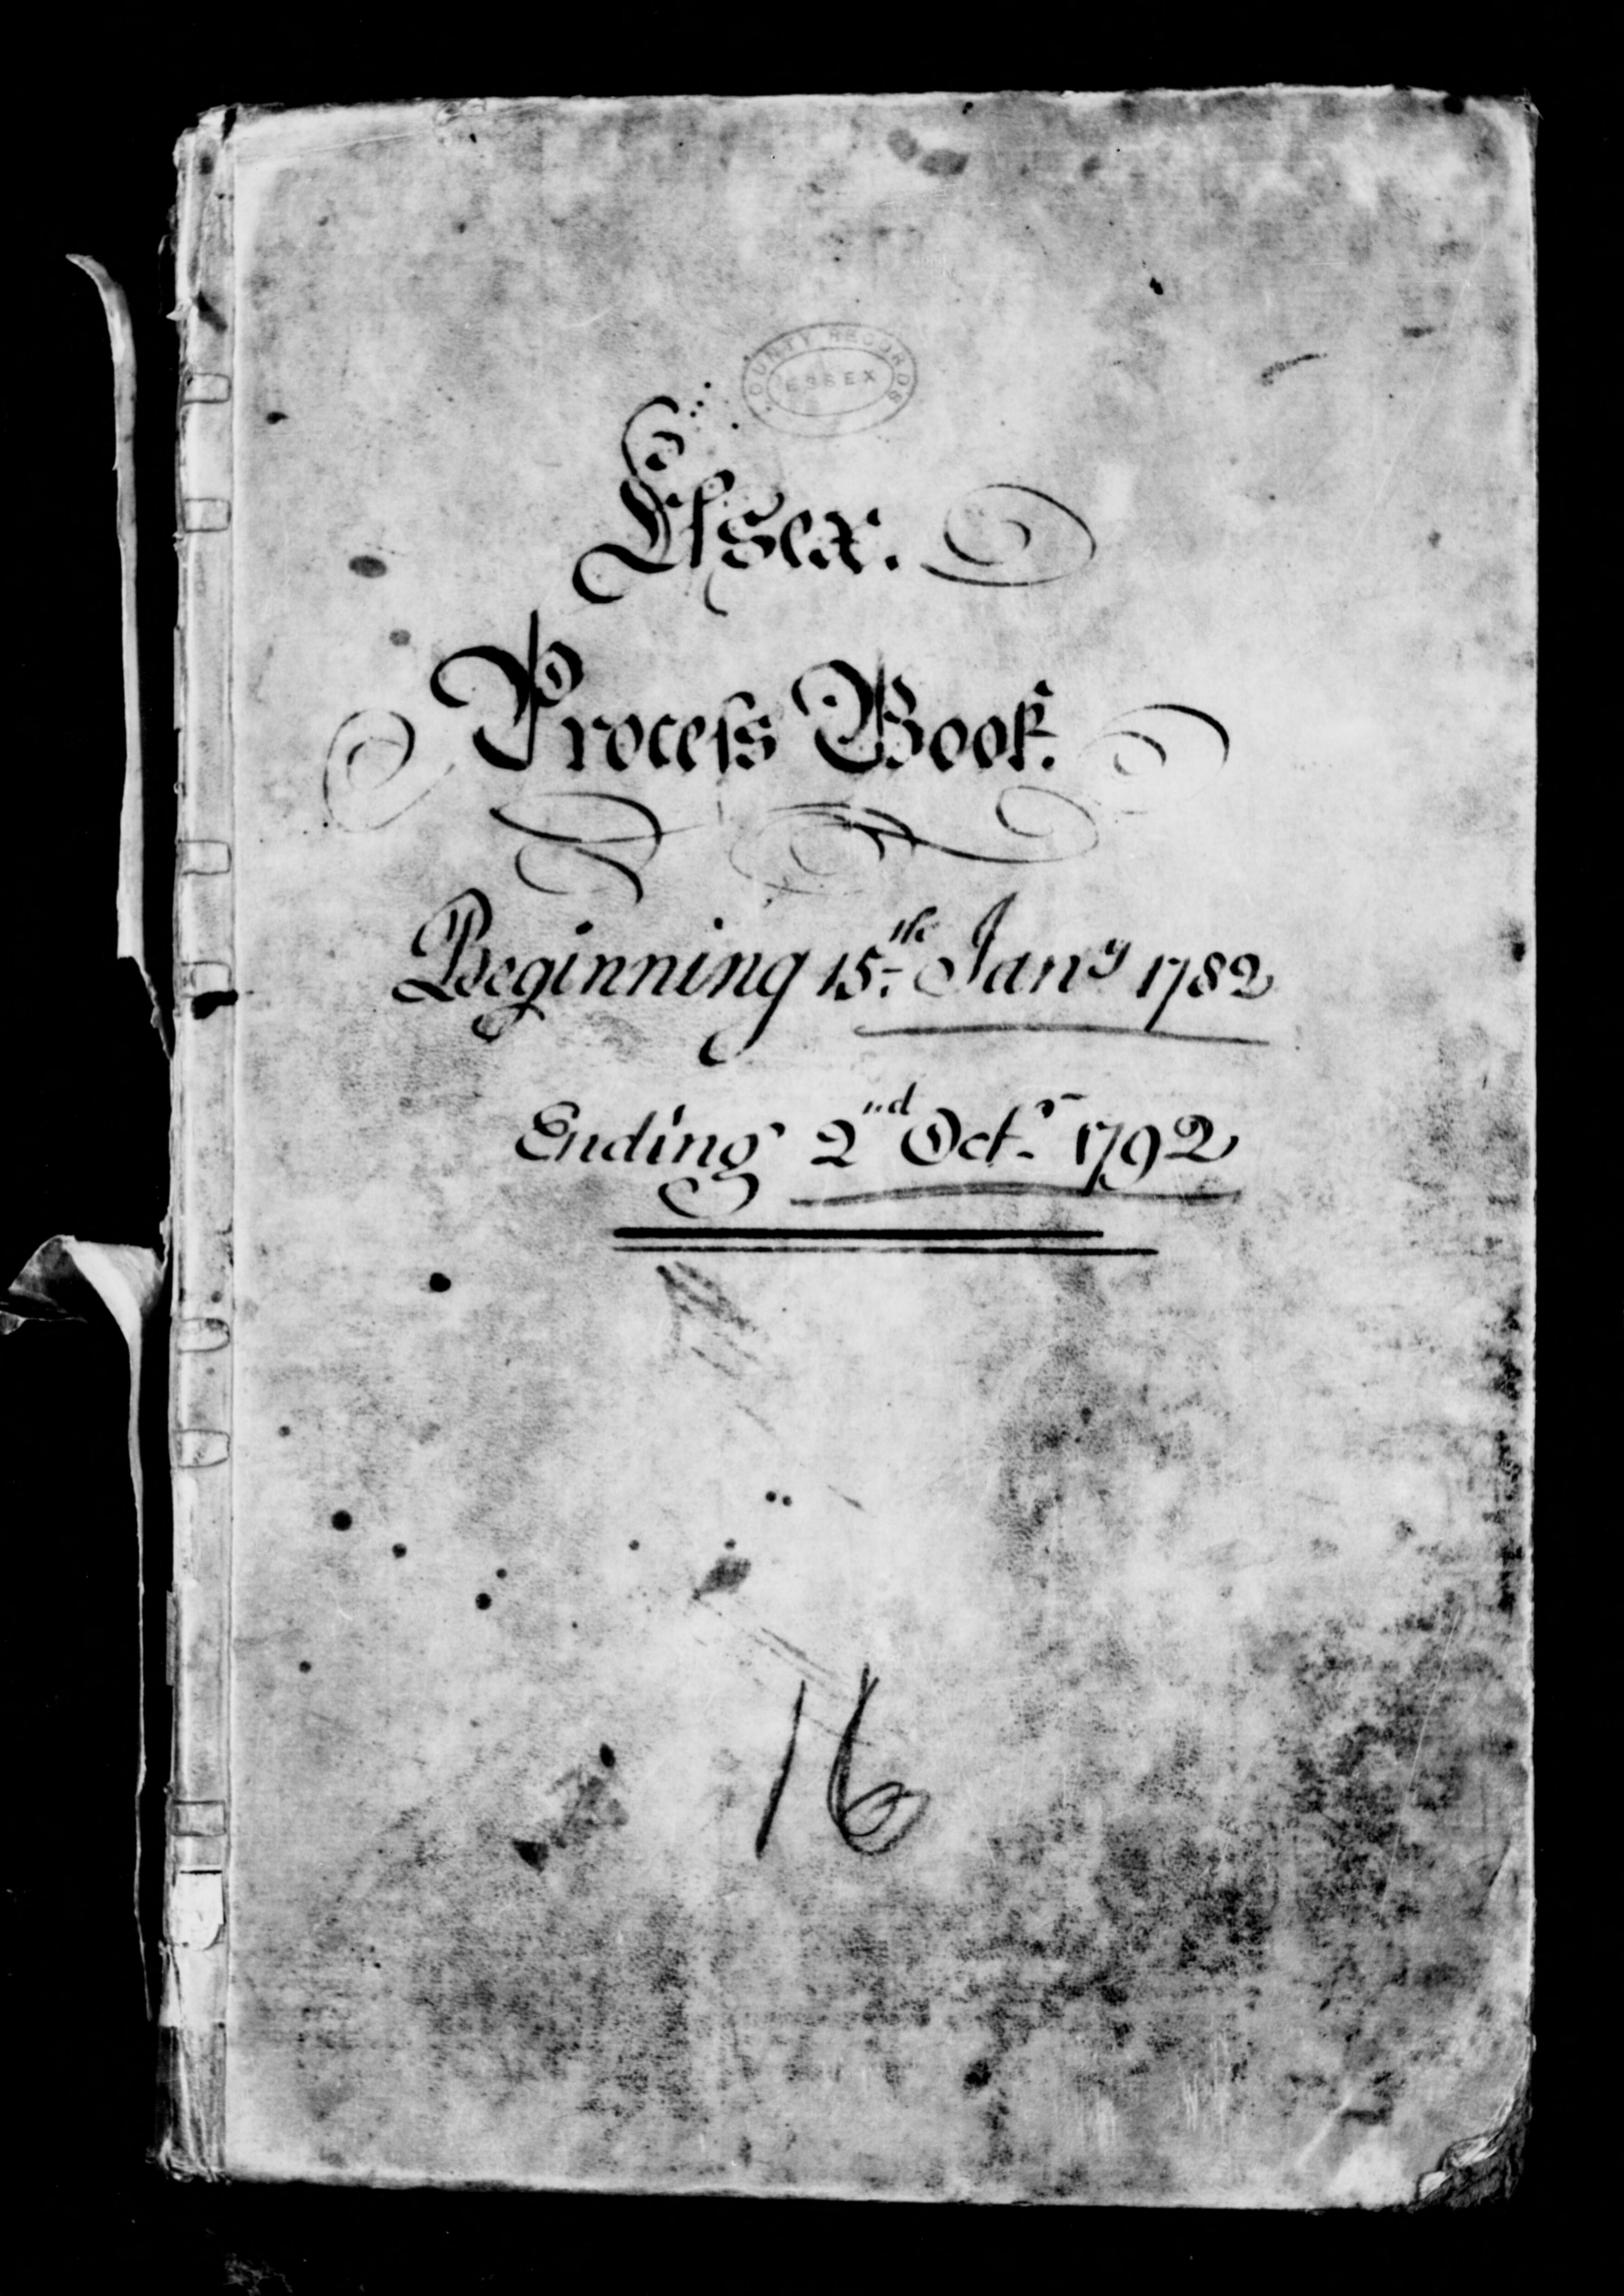 COUNTY RECORDS
ESSEX
Eſsex.
Proceſs Book.
Beginning 15th Jany 1782
Ending 2nd Octr 1792
16